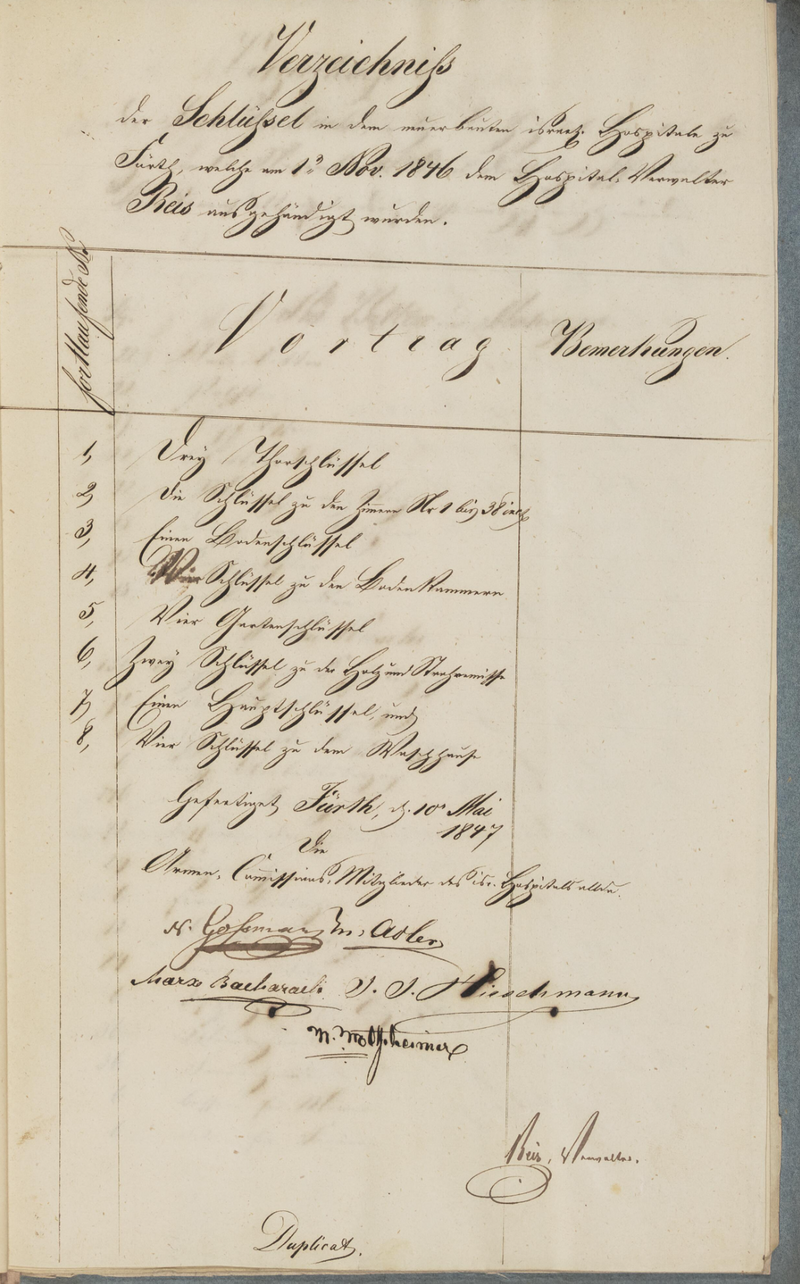 Verzeichniß
der Schlüssel in dem neuerbauten israel. Hospitale zu
Fürth, welche am 1ⁿ Nov. 1846 dem Hospital-Verwalter
Reis ausgehändigt wurden.
fortlaufende Nr
Vortrag
Bemerkungen.
1, Drey Thorschlüssel
2, Die Schlüssel zu den Zimern Nr 1 bis 38 incl.
3, Einen Bodenschlüssel
4, Vier Schlüssel zu den Bodenkammern
5, Vier Gartenschlüssel
6, Zwey Schlüssel zu der Holz und Strohremisse
7, Einen Hauptschlüssel, und
8, Vier Schlüssel zu dem Waschhause
Gefertiget Fürth, d. 10ⁿ Mai
1847
Die
Armen-Com̄issions-Mitglieder des isr. Hospitals allda.
Adler
Marx Bacharach J. J. Hirschmann
Reis, Verwalter.
Duplicat.